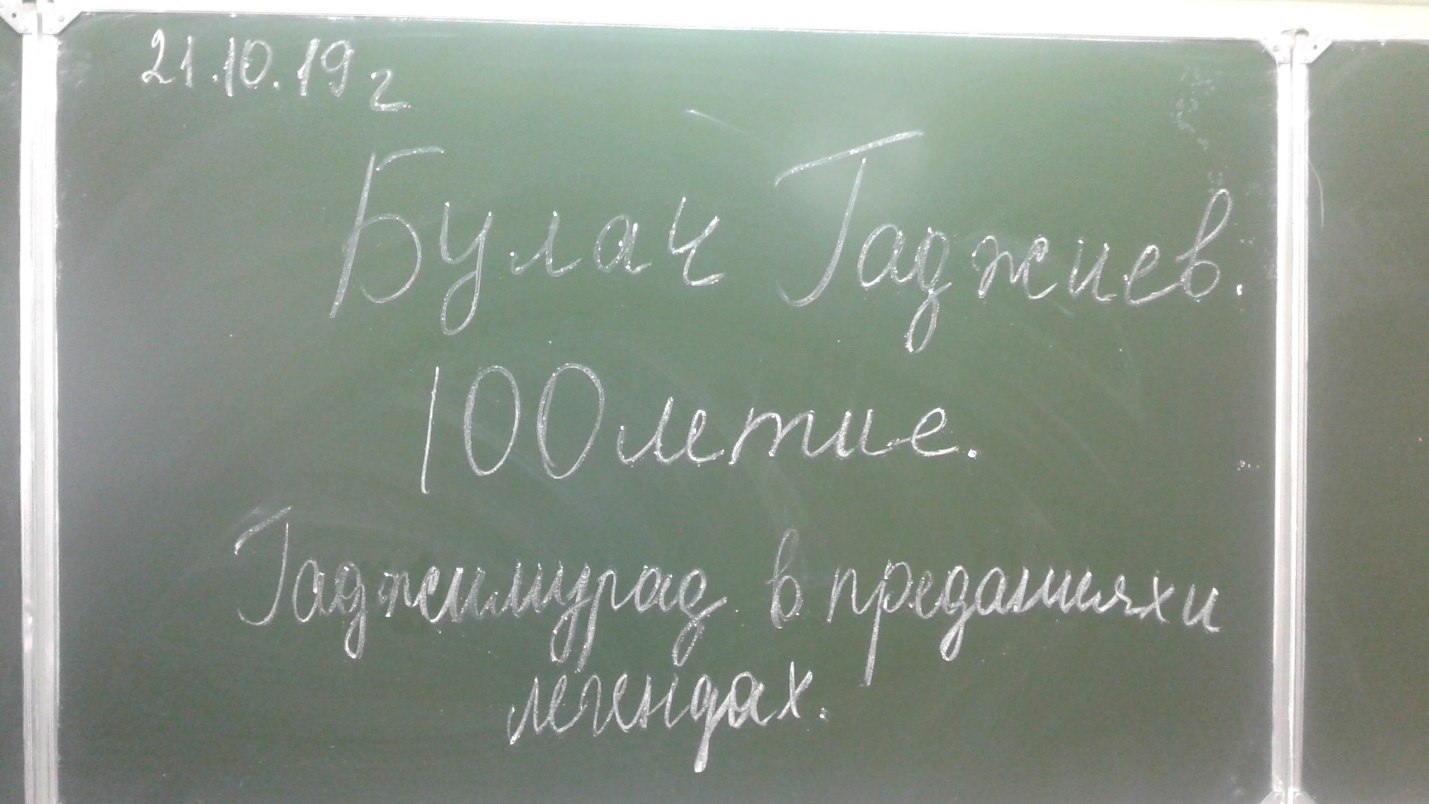 21.10.19 г
Булач Гаджиев.
100 летие.
Гаджимурад в преданиях и
легендах.